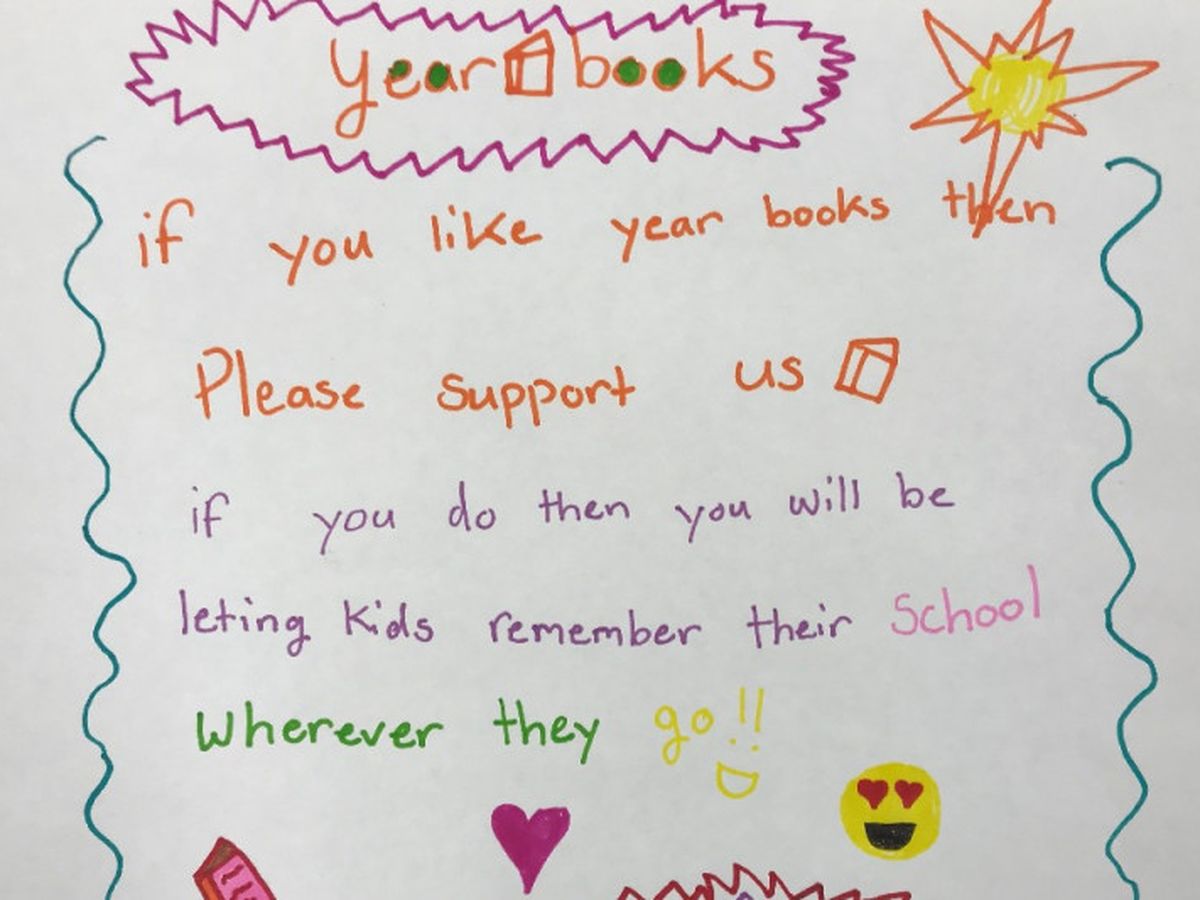 year books
if you like year books then
Please support us
if you do then you will be
leting kids remember their School
wherever they go!!